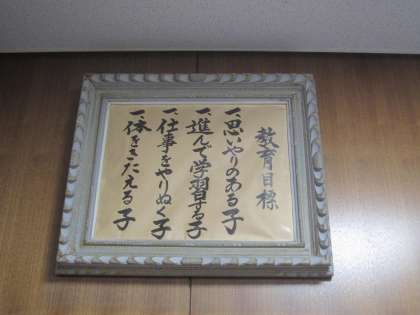 教育目標
一、思いやりのある子
一、進んで学習する子
一、仕事をやりぬく子
一、体をきたえる子